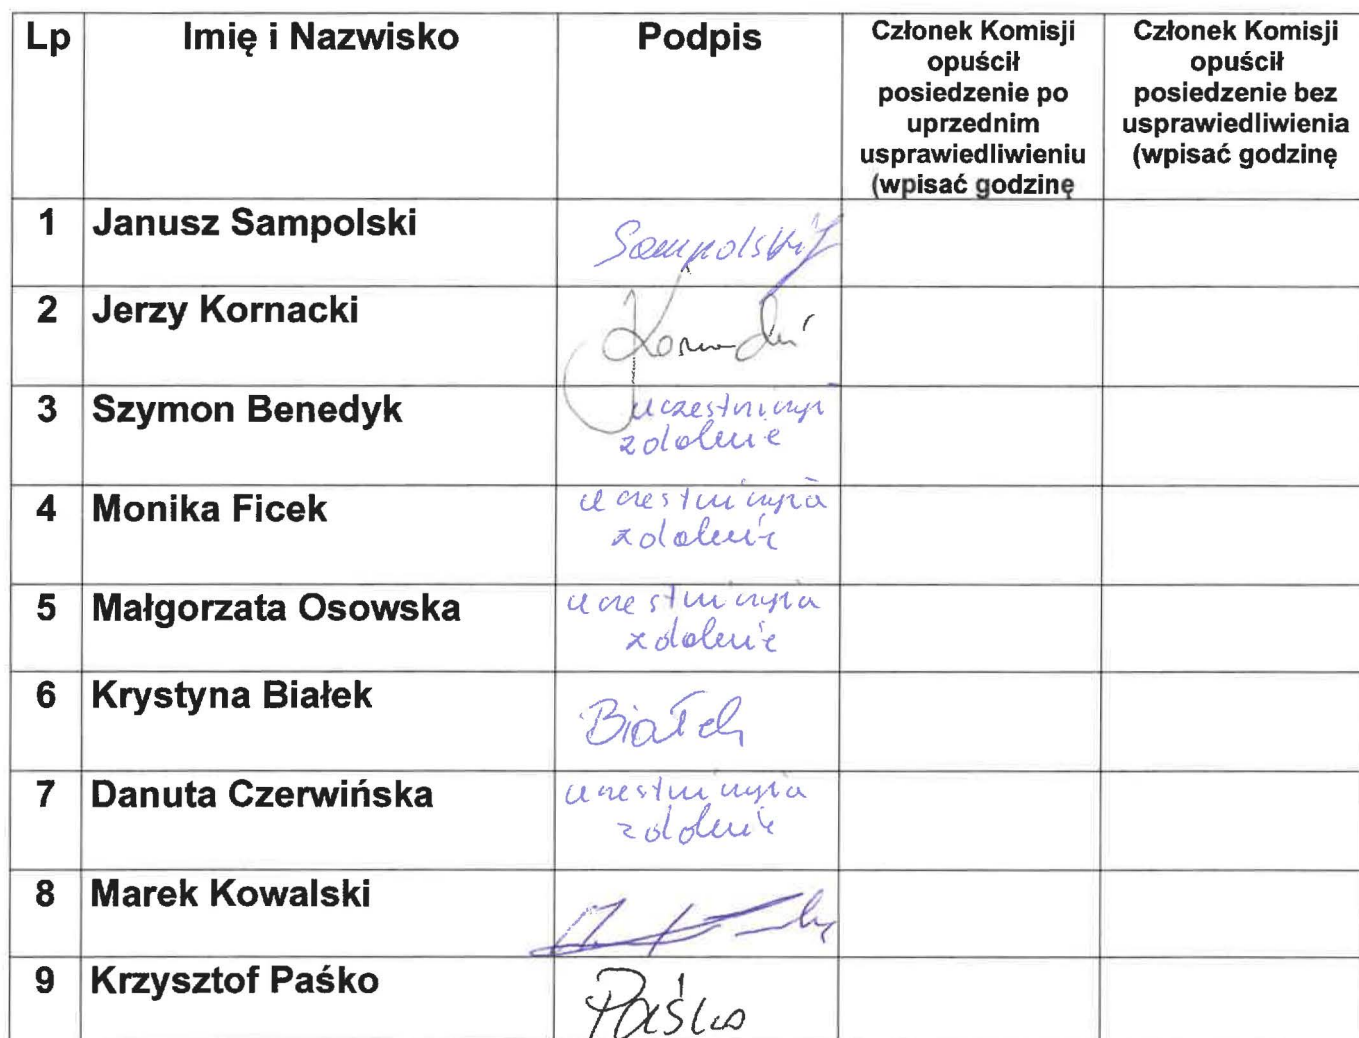 Lp Imię i Nazwisko Podpis Członek Komisji opuścił posiedzenie po uprzednim usprawiedliwieniu (wpisać godzinę Członek Komisji opuścił posiedzenie bez usprawiedliwienia (wpisać godzinę
1 Janusz Sampolski Sampolski J
2 Jerzy Kornacki
3 Szymon Benedyk uczestniczył
zdalnie
4 Monika Ficek uczestniczyła
zdalnie
5 Małgorzata Osowska uczestniczyła
zdalnie
6 Krystyna Białek Białek
7 Danuta Czerwińska uczestniczyła
zdalnie
8 Marek Kowalski
9 Krzysztof Paśko Paśko